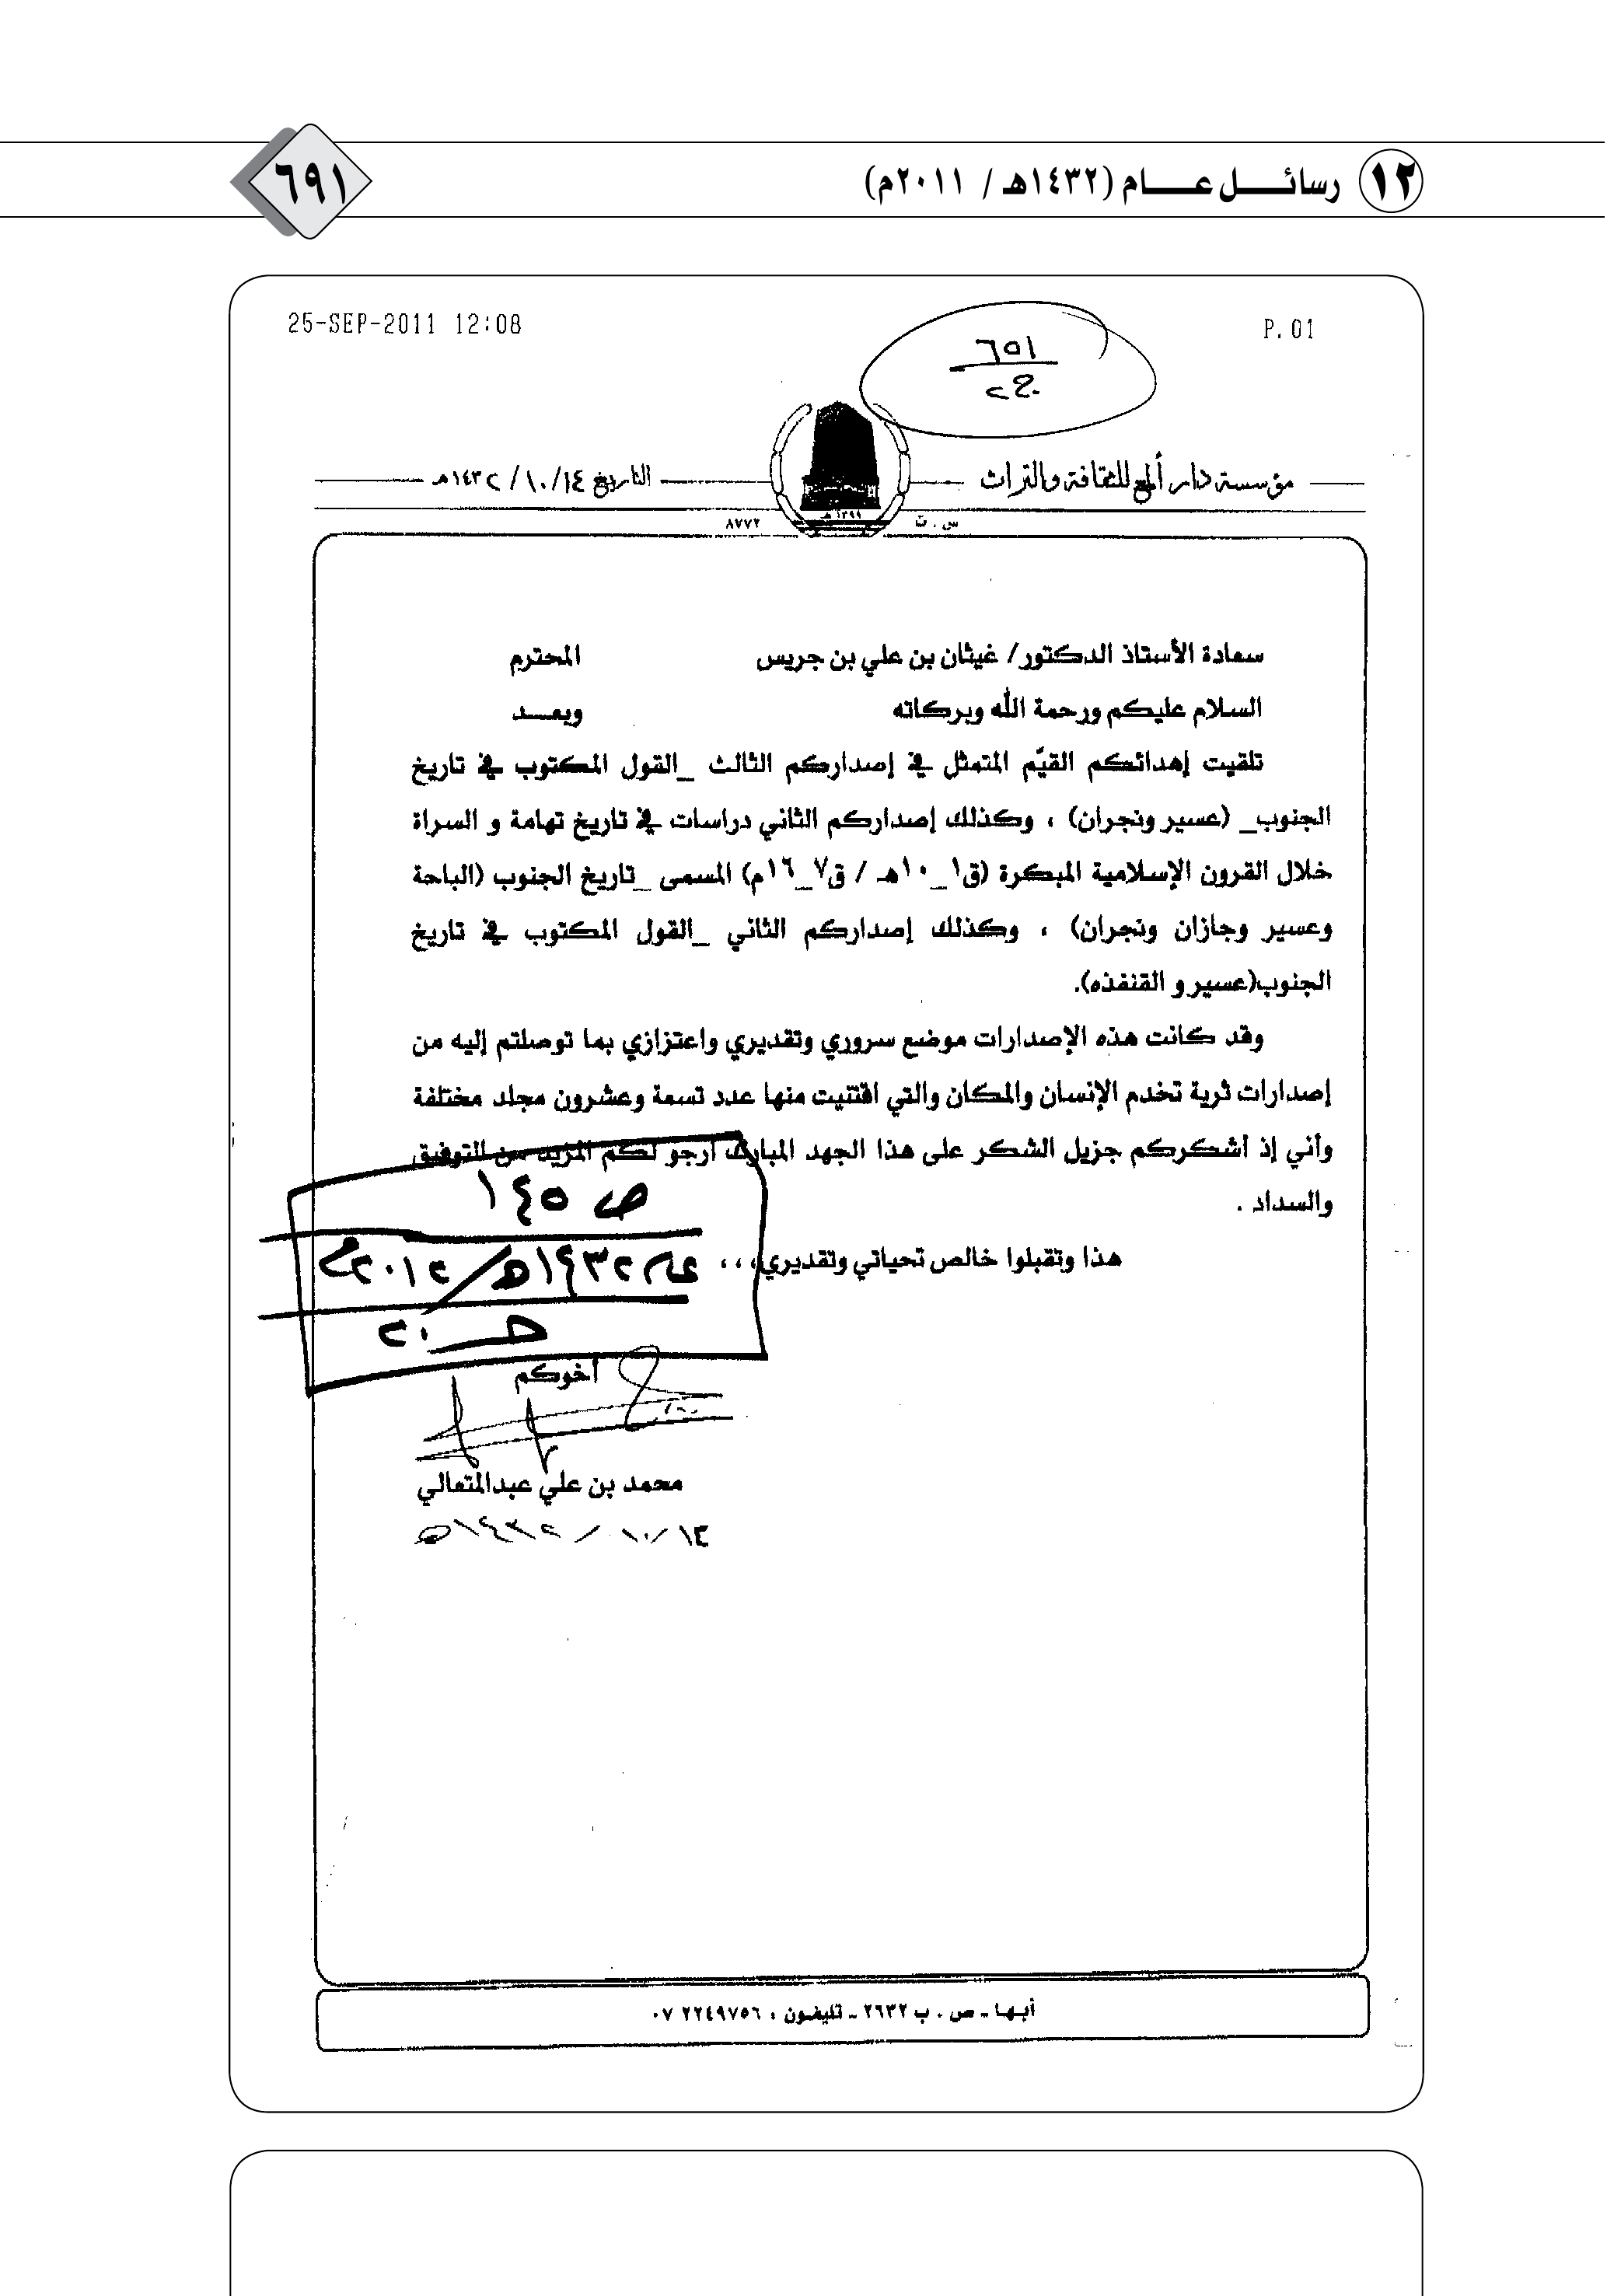 ١٢ رسائــل عــــام (١٤٣٢هـ / ٢٠١١م)
٦٩١
25-SEP-2011 12:08
P.01
٦٥١
ج٢
مؤسسة دار ألمع للثقافة والتراث
التاريخ ١٤/ ١٠/ ١٤٣٢هـ
١٣٩٩ هـ
س . ت
٨٧٧٢
سعادة الأستاذ الدكتور/ غيثان بن علي بن جريس المحترم
السلام عليكم ورحمة الله وبركاته وبعــد
تلقيت إهدائكم القيّم المتمثل في إصداركم الثالث _القول المكتوب في تاريخ
الجنوب_ (عسير ونجران) ، وكذلك إصداركم الثاني دراسات في تاريخ تهامة و السراة
خلال القرون الإسلامية المبكرة (ق١_١٠هـ / ق٧_١٦م) المسمى _تاريخ الجنوب (الباحة
وعسير وجازان ونجران) ، وكذلك إصداركم الثاني _القول المكتوب في تاريخ
الجنوب(عسير و القنفذه).
وقد كانت هذه الإصدارات موضع سروري وتقديري واعتزازي بما توصلتم إليه من
إصدارات ثرية تخدم الإنسان والمكان والتي اقتنيت منها عدد تسعة وعشرون مجلد مختلفة
وأني إذ أشكركم جزيل الشكر على هذا الجهد المبارك أرجو لكم المزيد من التوفيق
والسداد .
هذا وتقبلوا خالص تحياتي وتقديري،،،
ص ١٤٥
عام ١٤٣٢هـ/٢٠١٢م
حـ ٢٠
أخوكم
محمد بن علي عبدالمتعالي
١٤ /١٠ / ١٤٣٢هـ
أبـهـا ـ ص . ب ٢٦٣٢ ـ تليفـون : ٢٢٤٩٧٥٦ ٠٧